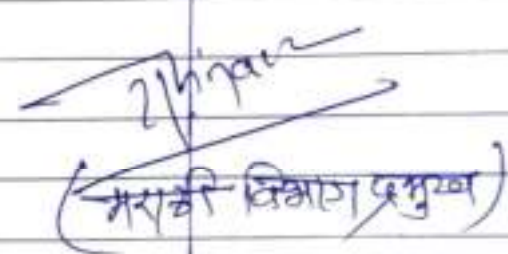 (मराठी विभाग प्रमुख)